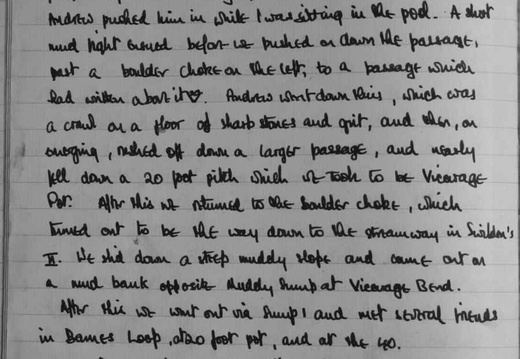 Andrew pushed him in while I was sitting in the pool. A short
mud fight ensued before we pushed on down the passage,
past a boulder choke on the left, to a passage which
had written above it. Andrew went down this, which was
a crawl on a floor of sharp stones and grit, and then, on
emerging, rushed off down a larger passage, and nearly
fell down a 20 foot pitch which we took to be Vicarage
Pot. After this we returned to the boulder choke, which
turned out to be the way down to the streamway in Swildon's
II. We slid down a steep muddy slope and came out on
a mud bank opposite Muddy Sump at Vicarage Bend.
After this we went out via Sump 1 and met several friends
in Barnes Loop, at 20 foot pot, and at the 40.